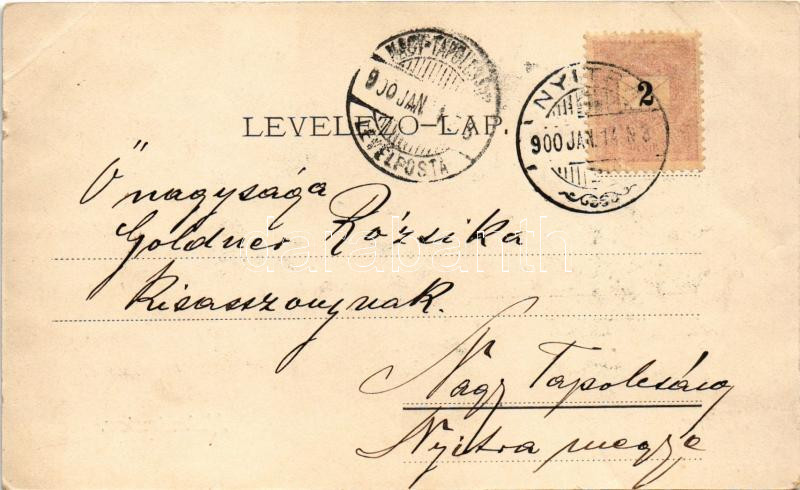 LEVELEZŐ-LAP.
NAGY-TAPOLCSÁNY
900 JAN
LEVÉLPOSTA
NYITRA
900 JAN. 14 N 3
2
Ő nagysága
Goldner Rózsika
kisasszonynak.
Nagy Tapolcsány
Nyitra megye
darabanth